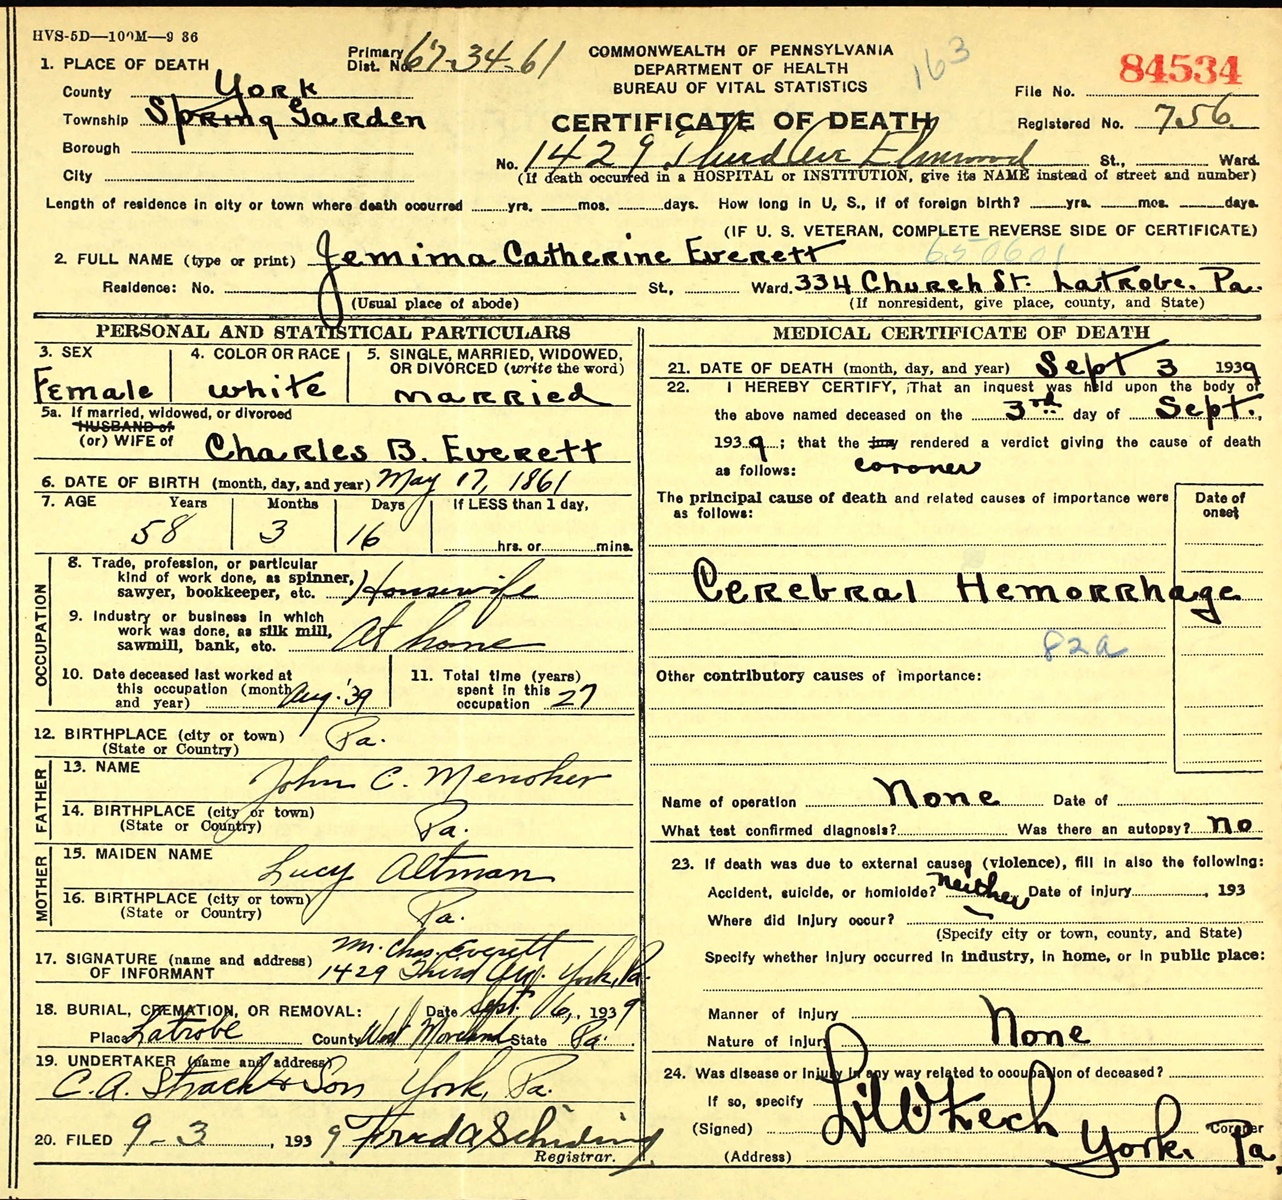 HVS-5D—100M—9 36
Primary Dist. No. 67-34-61
COMMONWEALTH OF PENNSYLVANIA
DEPARTMENT OF HEALTH
BUREAU OF VITAL STATISTICS
163
84534
File No.
Registered No. 756
CERTIFICATE OF DEATH
1. PLACE OF DEATH
County York
Township Spring Garden
Borough
City
No. 1429 Third Ave Elmwood St., Ward.
(If death occurred in a HOSPITAL or INSTITUTION, give its NAME instead of street and number)
Length of residence in city or town where death occurred yrs. mos. days. How long in U. S., if of foreign birth? yrs. mos. days.
(IF U. S. VETERAN, COMPLETE REVERSE SIDE OF CERTIFICATE)
650601
2. FULL NAME (type or print) Jemima Catherine Everett
Residence: No. St., Ward. 334 Church St. Latrobe, Pa.
(Usual place of abode) (If nonresident, give place, county, and State)
PERSONAL AND STATISTICAL PARTICULARS
3. SEX Female
4. COLOR OR RACE white
5. SINGLE, MARRIED, WIDOWED, OR DIVORCED (write the word) married
5a. If married, widowed, or divorced
HUSBAND of
(or) WIFE of Charles B. Everett
6. DATE OF BIRTH (month, day, and year) May 17, 1861
7. AGE Years Months Days If LESS than 1 day,
58 3 16 hrs. or mins.
OCCUPATION
8. Trade, profession, or particular
kind of work done, as spinner,
sawyer, bookkeeper, etc. Housewife
9. Industry or business in which
work was done, as silk mill,
sawmill, bank, etc. At home
10. Date deceased last worked at
this occupation (month
and year) Aug. '39
11. Total time (years)
spent in this
occupation 27
12. BIRTHPLACE (city or town) Pa.
(State or Country)
FATHER
13. NAME John C. Menoher
14. BIRTHPLACE (city or town) Pa.
(State or Country)
MOTHER
15. MAIDEN NAME Lucy Altman
16. BIRTHPLACE (city or town) Pa.
(State or Country)
17. SIGNATURE (name and address) Mr. Chas Everett
OF INFORMANT 1429 Third Ave. York, Pa.
18. BURIAL, CREMATION, OR REMOVAL: Date Sept. 6, 1939
Place Latrobe County West Moreland State Pa.
19. UNDERTAKER (name and address)
C. A. Strack & Son York, Pa.
20. FILED 9-3, 1939 Fred A Schiding
Registrar.
MEDICAL CERTIFICATE OF DEATH
21. DATE OF DEATH (month, day, and year) Sept 3 1939
22. I HEREBY CERTIFY, That an inquest was held upon the body of
the above named deceased on the 3rd day of Sept.,
1939; that the jury rendered a verdict giving the cause of death
as follows: coroner
The principal cause of death and related causes of importance were
as follows:
Date of
onset
Cerebral Hemorrhage
82a
Other contributory causes of importance:
Name of operation None Date of
What test confirmed diagnosis? Was there an autopsy? no
23. If death was due to external causes (violence), fill in also the following:
Accident, suicide, or homicide? neither Date of injury , 193
Where did injury occur?
(Specify city or town, county, and State)
Specify whether injury occurred in industry, in home, or in public place:
Manner of injury
Nature of injury None
24. Was disease or injury in any way related to occupation of deceased?
If so, specify
(Signed) Zech Coroner
(Address) York, Pa.